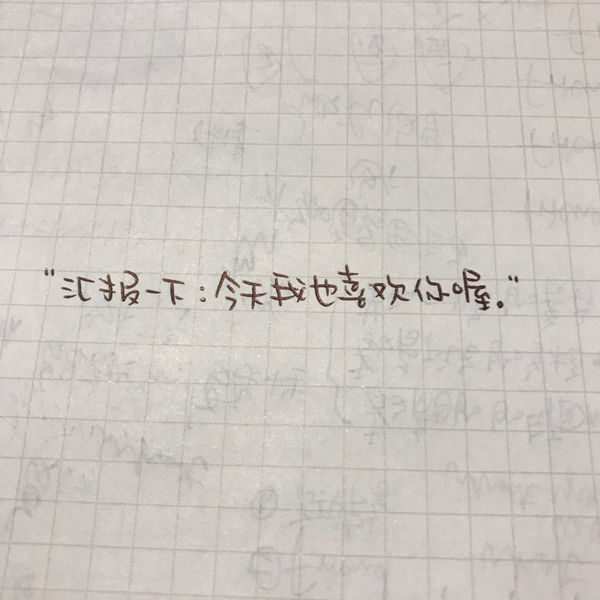 “汇报一下：今天我也喜欢你喔。”